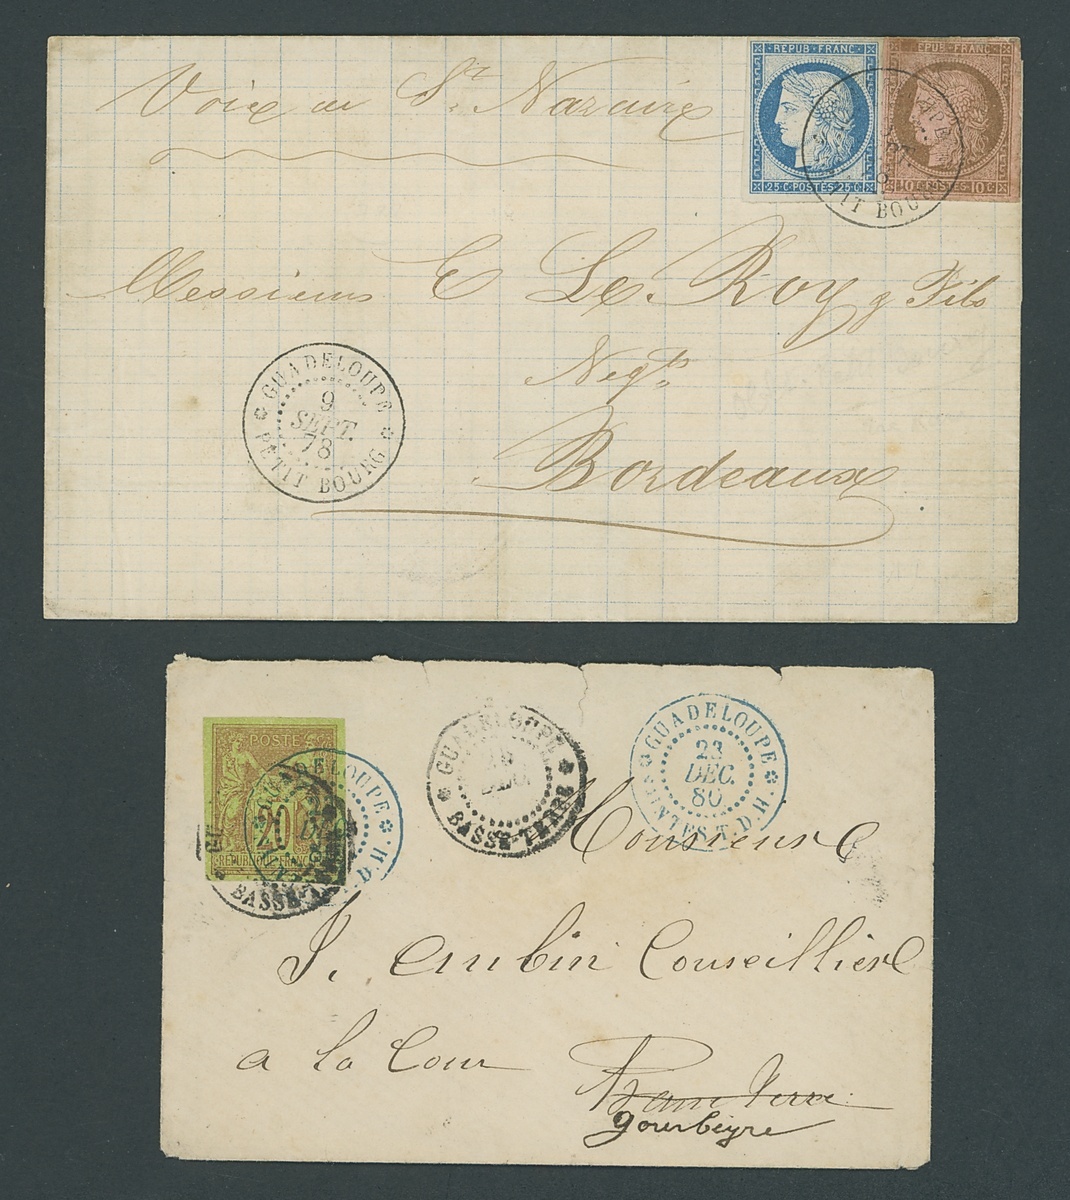 Voie de St Nazaire
REPUB FRANC
25 C POSTES 25 C
REPUB FRANC
10 C POSTES 10 C
PETIT BOURG
Messieurs E Le Roy & Fils
Negts
Bordeaux
GUADELOUPE
9
SEPT.
78
PETIT BOURG
POSTES
20
REPUBLIQUE FRANC
GUADELOUPE
D.H.
BASSE-TERRE
GUADELOUPE
DEC.
BASSE-TERRE
GUADELOUPE
23
DEC.
80
POINTES A. D. H.
Monsieur
J. Aubin Conseillier
a la Cour
Basse Terre
gourbeyre